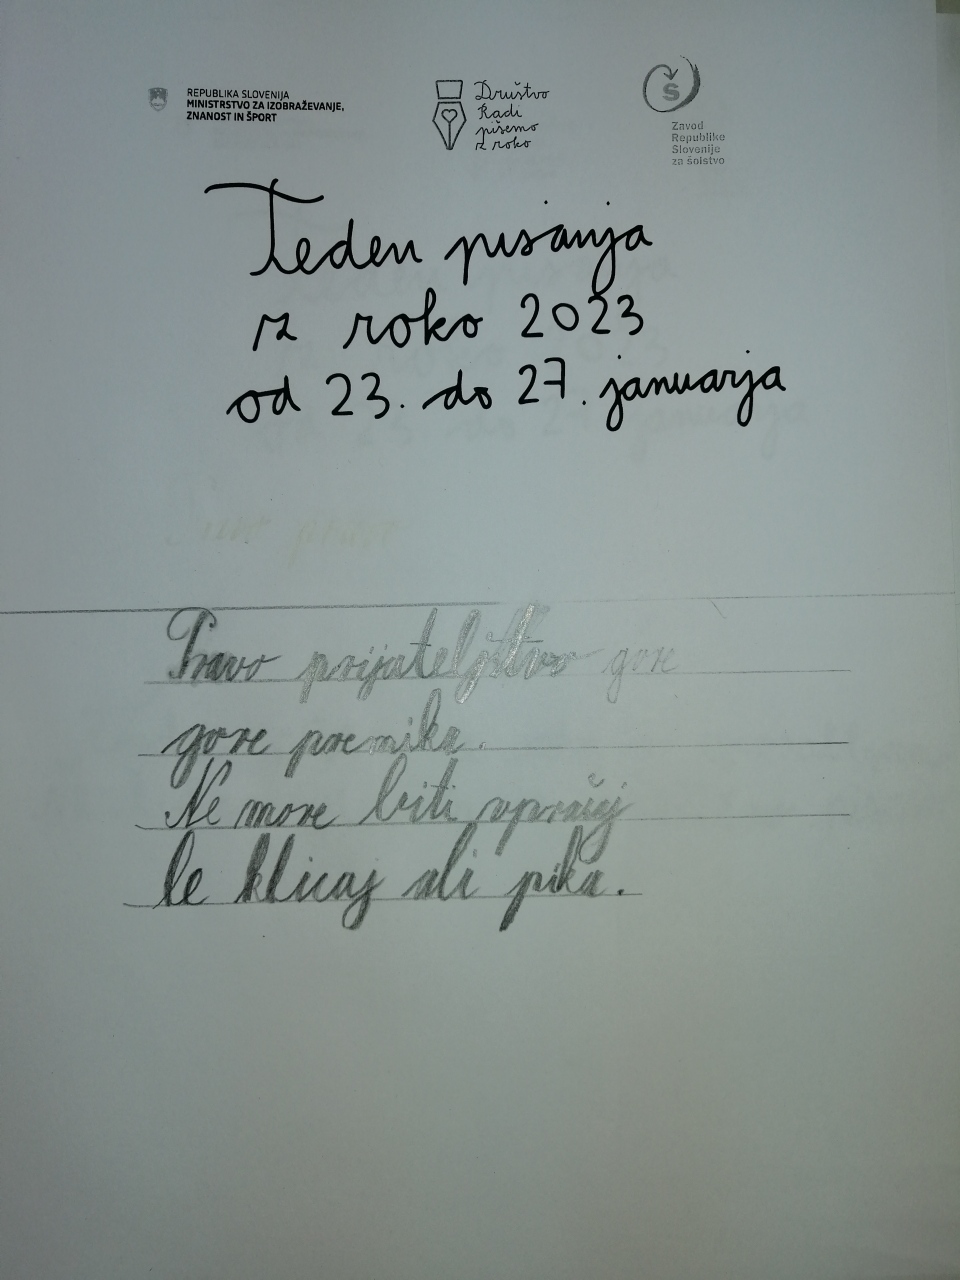 REPUBLIKA SLOVENIJA
MINISTRSTVO ZA IZOBRAŽEVANJE,
ZNANOST IN ŠPORT
Društvo
Radi
pišemo
z roko
Zavod
Republike
Slovenije
za šolstvo
Teden pisanja
z roko 2023
od 23. do 27. januarja
Pravo prijateljstvo gore
gore premika.
Ne more biti vprašaj
le klicaj ali pika.